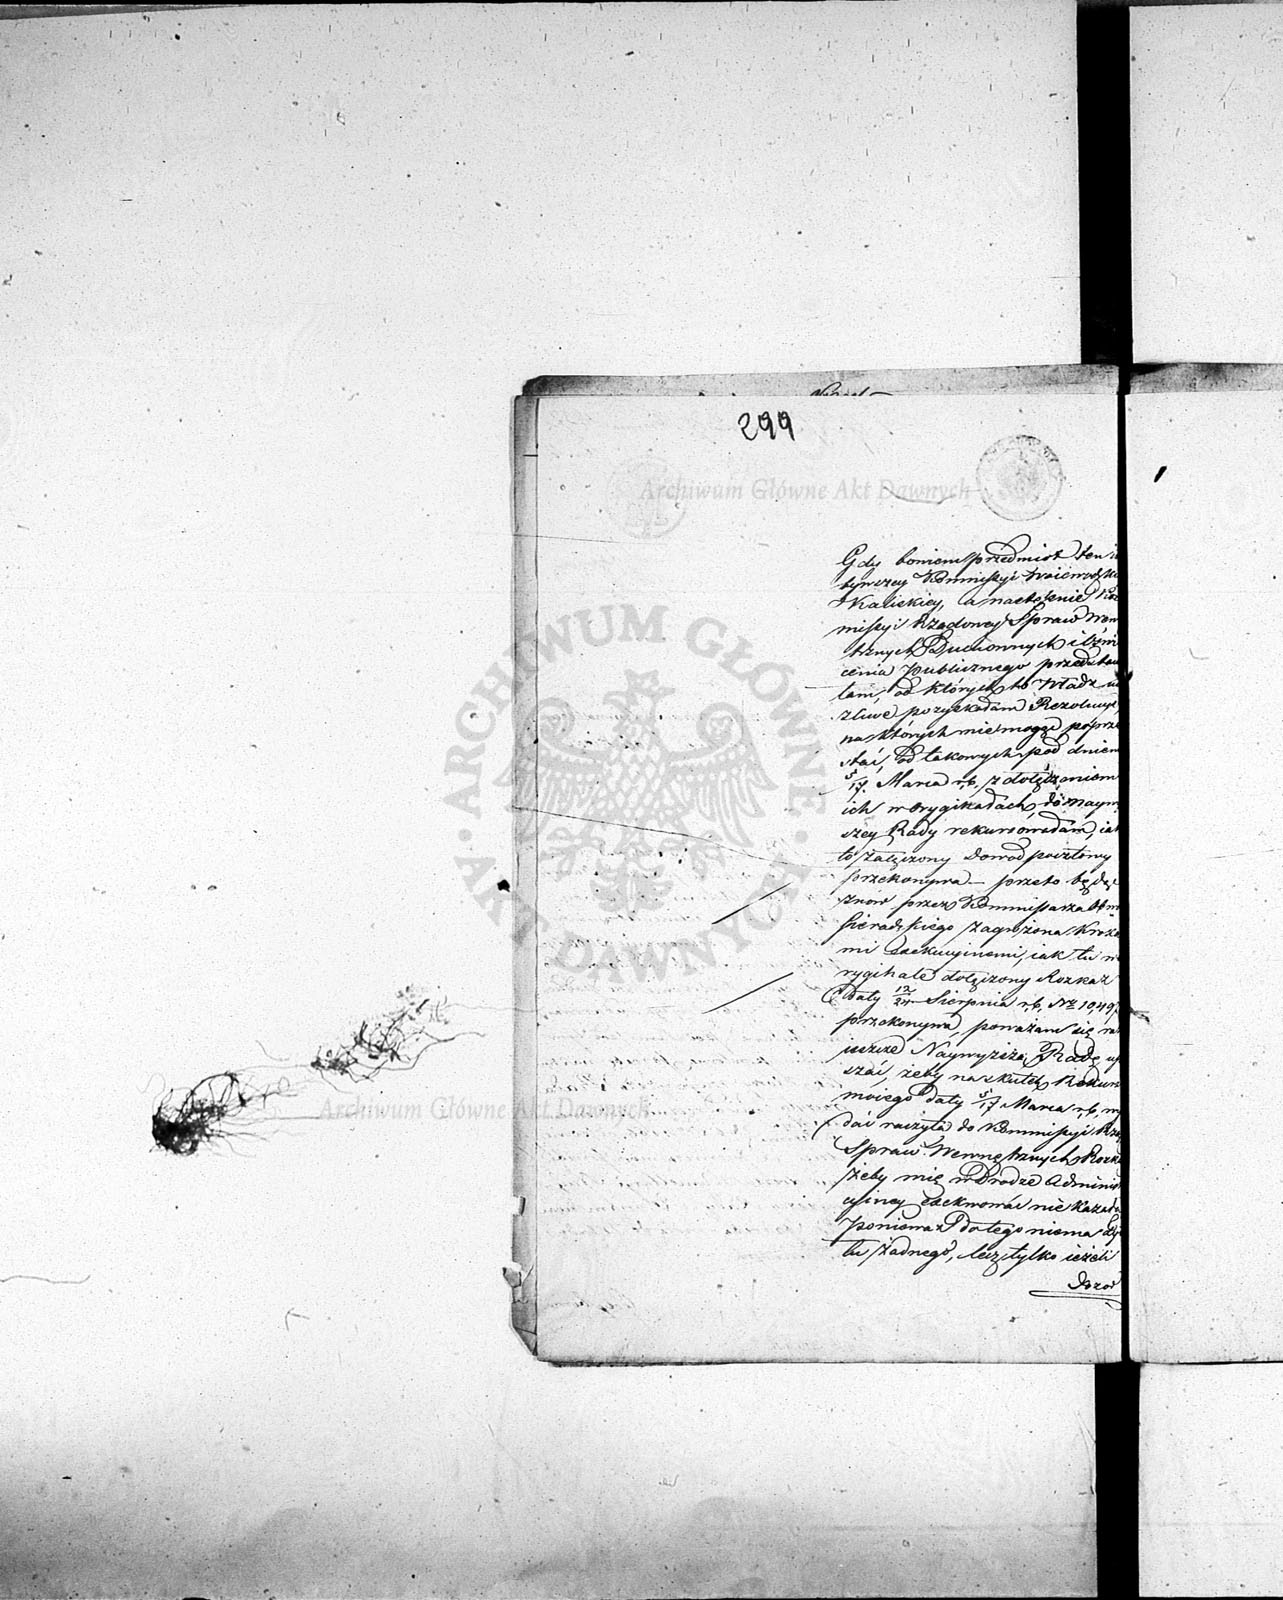 299
Archiwum Główne Akt Dawnych
ARCHIWUM GŁÓWNE
AKT DAWNYCH
Gdy boniem przedmiot ten i
bywszey Kommissyi Woiewodzk
Kaliskiey, a nastempnie Kom
missyi Rządowey Spraw Wew
trznych Duchownych i Oświ
cenia Publicznego przedstaw
łam, od których to Władz
pozyskadam Rezolucye
na których nie mogąc poprze
stać, od takowych pod dniem
5/17. Marca r,b, z dołączeniem
ich w Orygikadach, do Nayw
szey Rady rekurowadam, iak
to załączony Dowod pocztowy
przekonywa — przeto będąc
znów przez Kommissarza Obw
Sieradzkiego zagrożona Kroka
mi exekucyinemi, iak tu w
rygikale dołączony Rozkaz
Daty 12/24 Sierpnia r,b, No 10,497
przekonywa, poważam się raz
ieszcze Naywyższą Radę up
szać, żeby na skutek Rekurs
moiego Daty 5/17 Marca r,b, wy
dać raczyła do Kommissyi Rzą
Spraw Wewnętrznych Rozka
żeby mię w Drodze Administ
cyiney exekwować nie kazała
Ponieważ do tego niema
tu żadnego, lecz tylko ieżeli
Dozor
Archiwum Główne Akt Dawnych